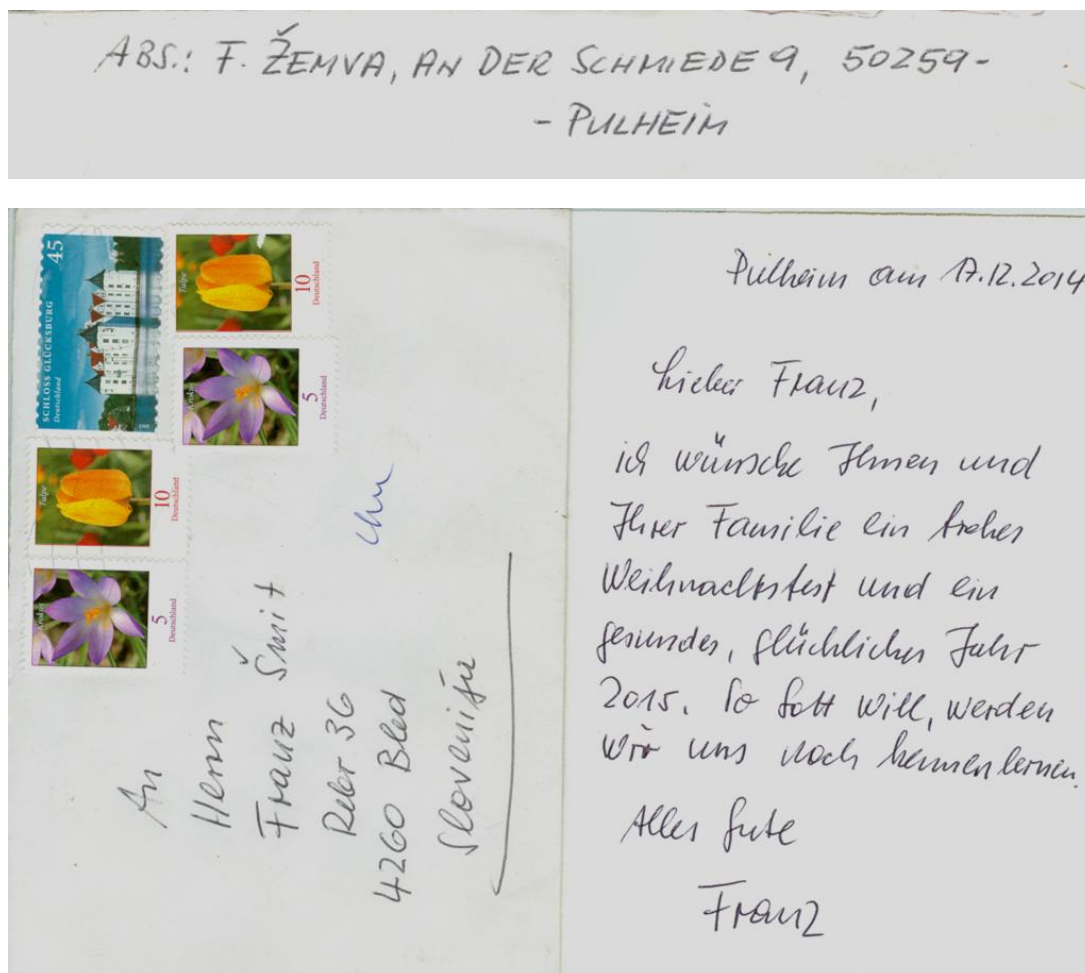 ABS.: F. ŽEMVA, AN DER SCHMIEDE 9, 50259-
- PULHEIM
SCHLOSS GLÜCKSBURG
Deutschland
45
Tulpe
10
Deutschland
Krokus
5
Deutschland
Tulpe
10
Deutschland
Krokus
5
Deutschland
An
Herrn
Franz Šmit
Reber 36
4260 Bled
Slovenija
Pulheim am 17.12.2014
Lieber Franz,
ich wünsche Ihnen und
Ihrer Familie ein frohes
Weihnachtsfest und ein
gesundes, glückliches Jahr
2015. So Gott will, werden
wir uns noch kennenlernen.
Alles Gute
Franz